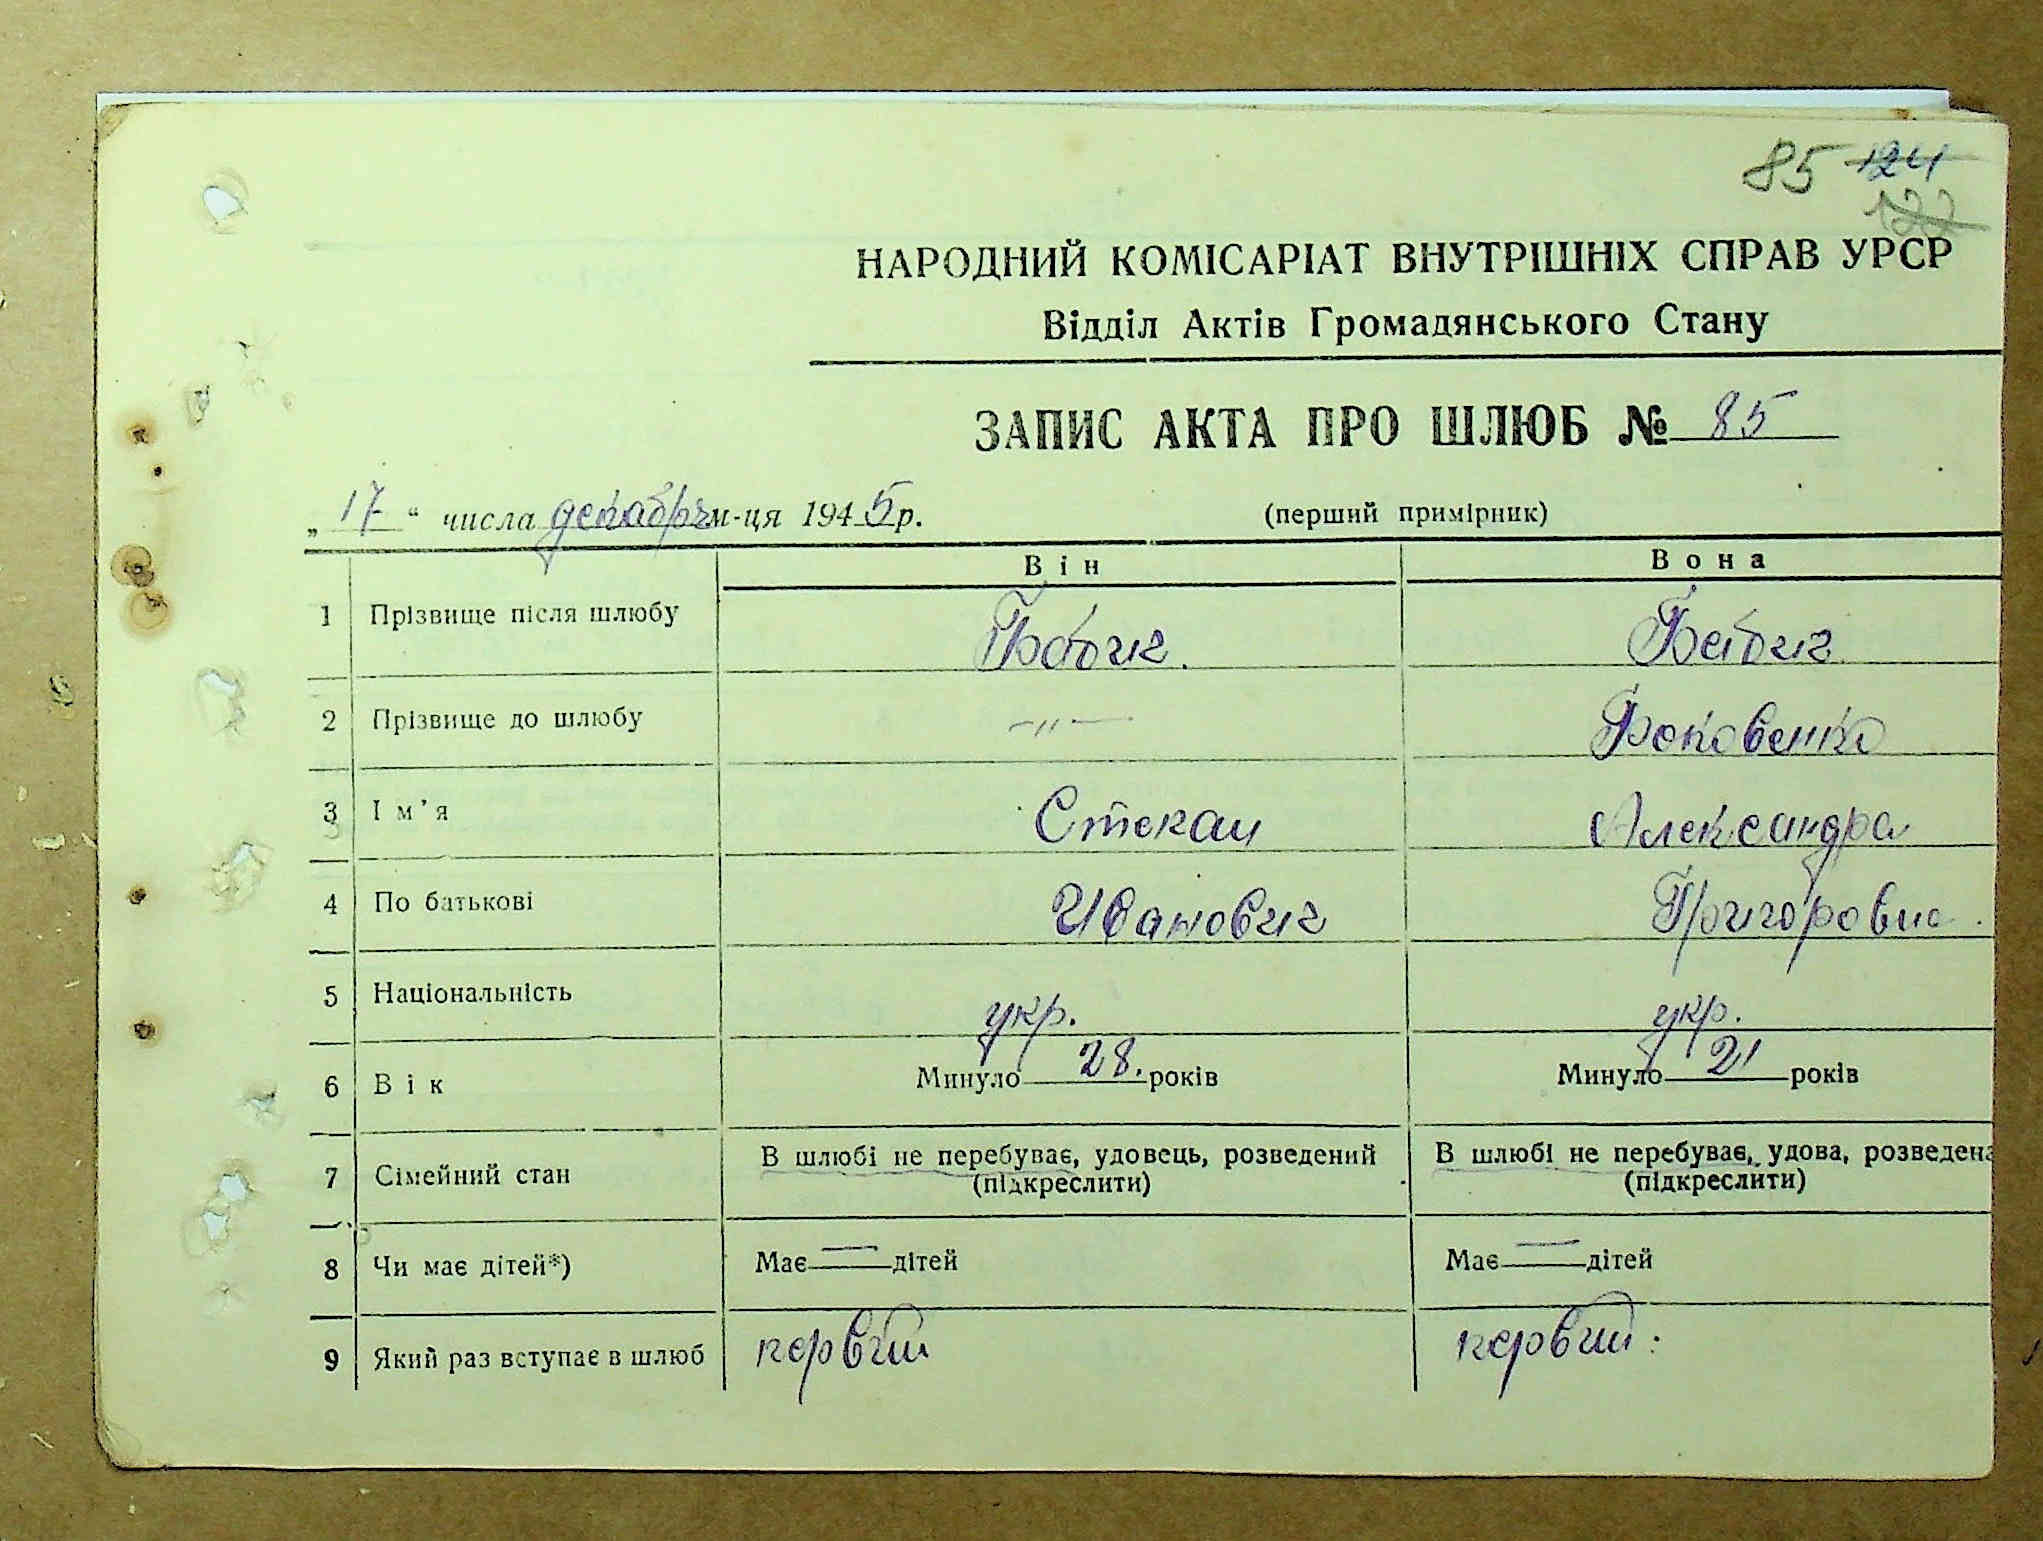 85 124
122
НАРОДНИЙ КОМІСАРІАТ ВНУТРІШНІХ СПРАВ УРСР
Відділ Актів Громадянського Стану
ЗАПИС АКТА ПРО ШЛЮБ № 85
„ 17 “ числа декабря м-ця 1945 р.
(перший примірник)
Він Вона
1 Прізвище після шлюбу
2 Прізвище до шлюбу —„—
3 Ім’я Степан Александра
4 По батькові Иванович Григоровна
5 Національність укр. укр.
6 Вік Минуло 28. років Минуло 21 років
7 Сімейний стан В шлюбі не перебуває, удовець, розведений В шлюбі не перебуває, удова, розведена
(підкреслити) (підкреслити)
8 Чи має дітей*) Має — дітей Має — дітей
9 Який раз вступає в шлюб первый первый